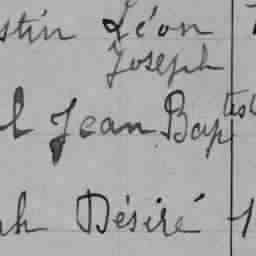 stin Léon
Joseph
l Jean Baptist
ph Désiré